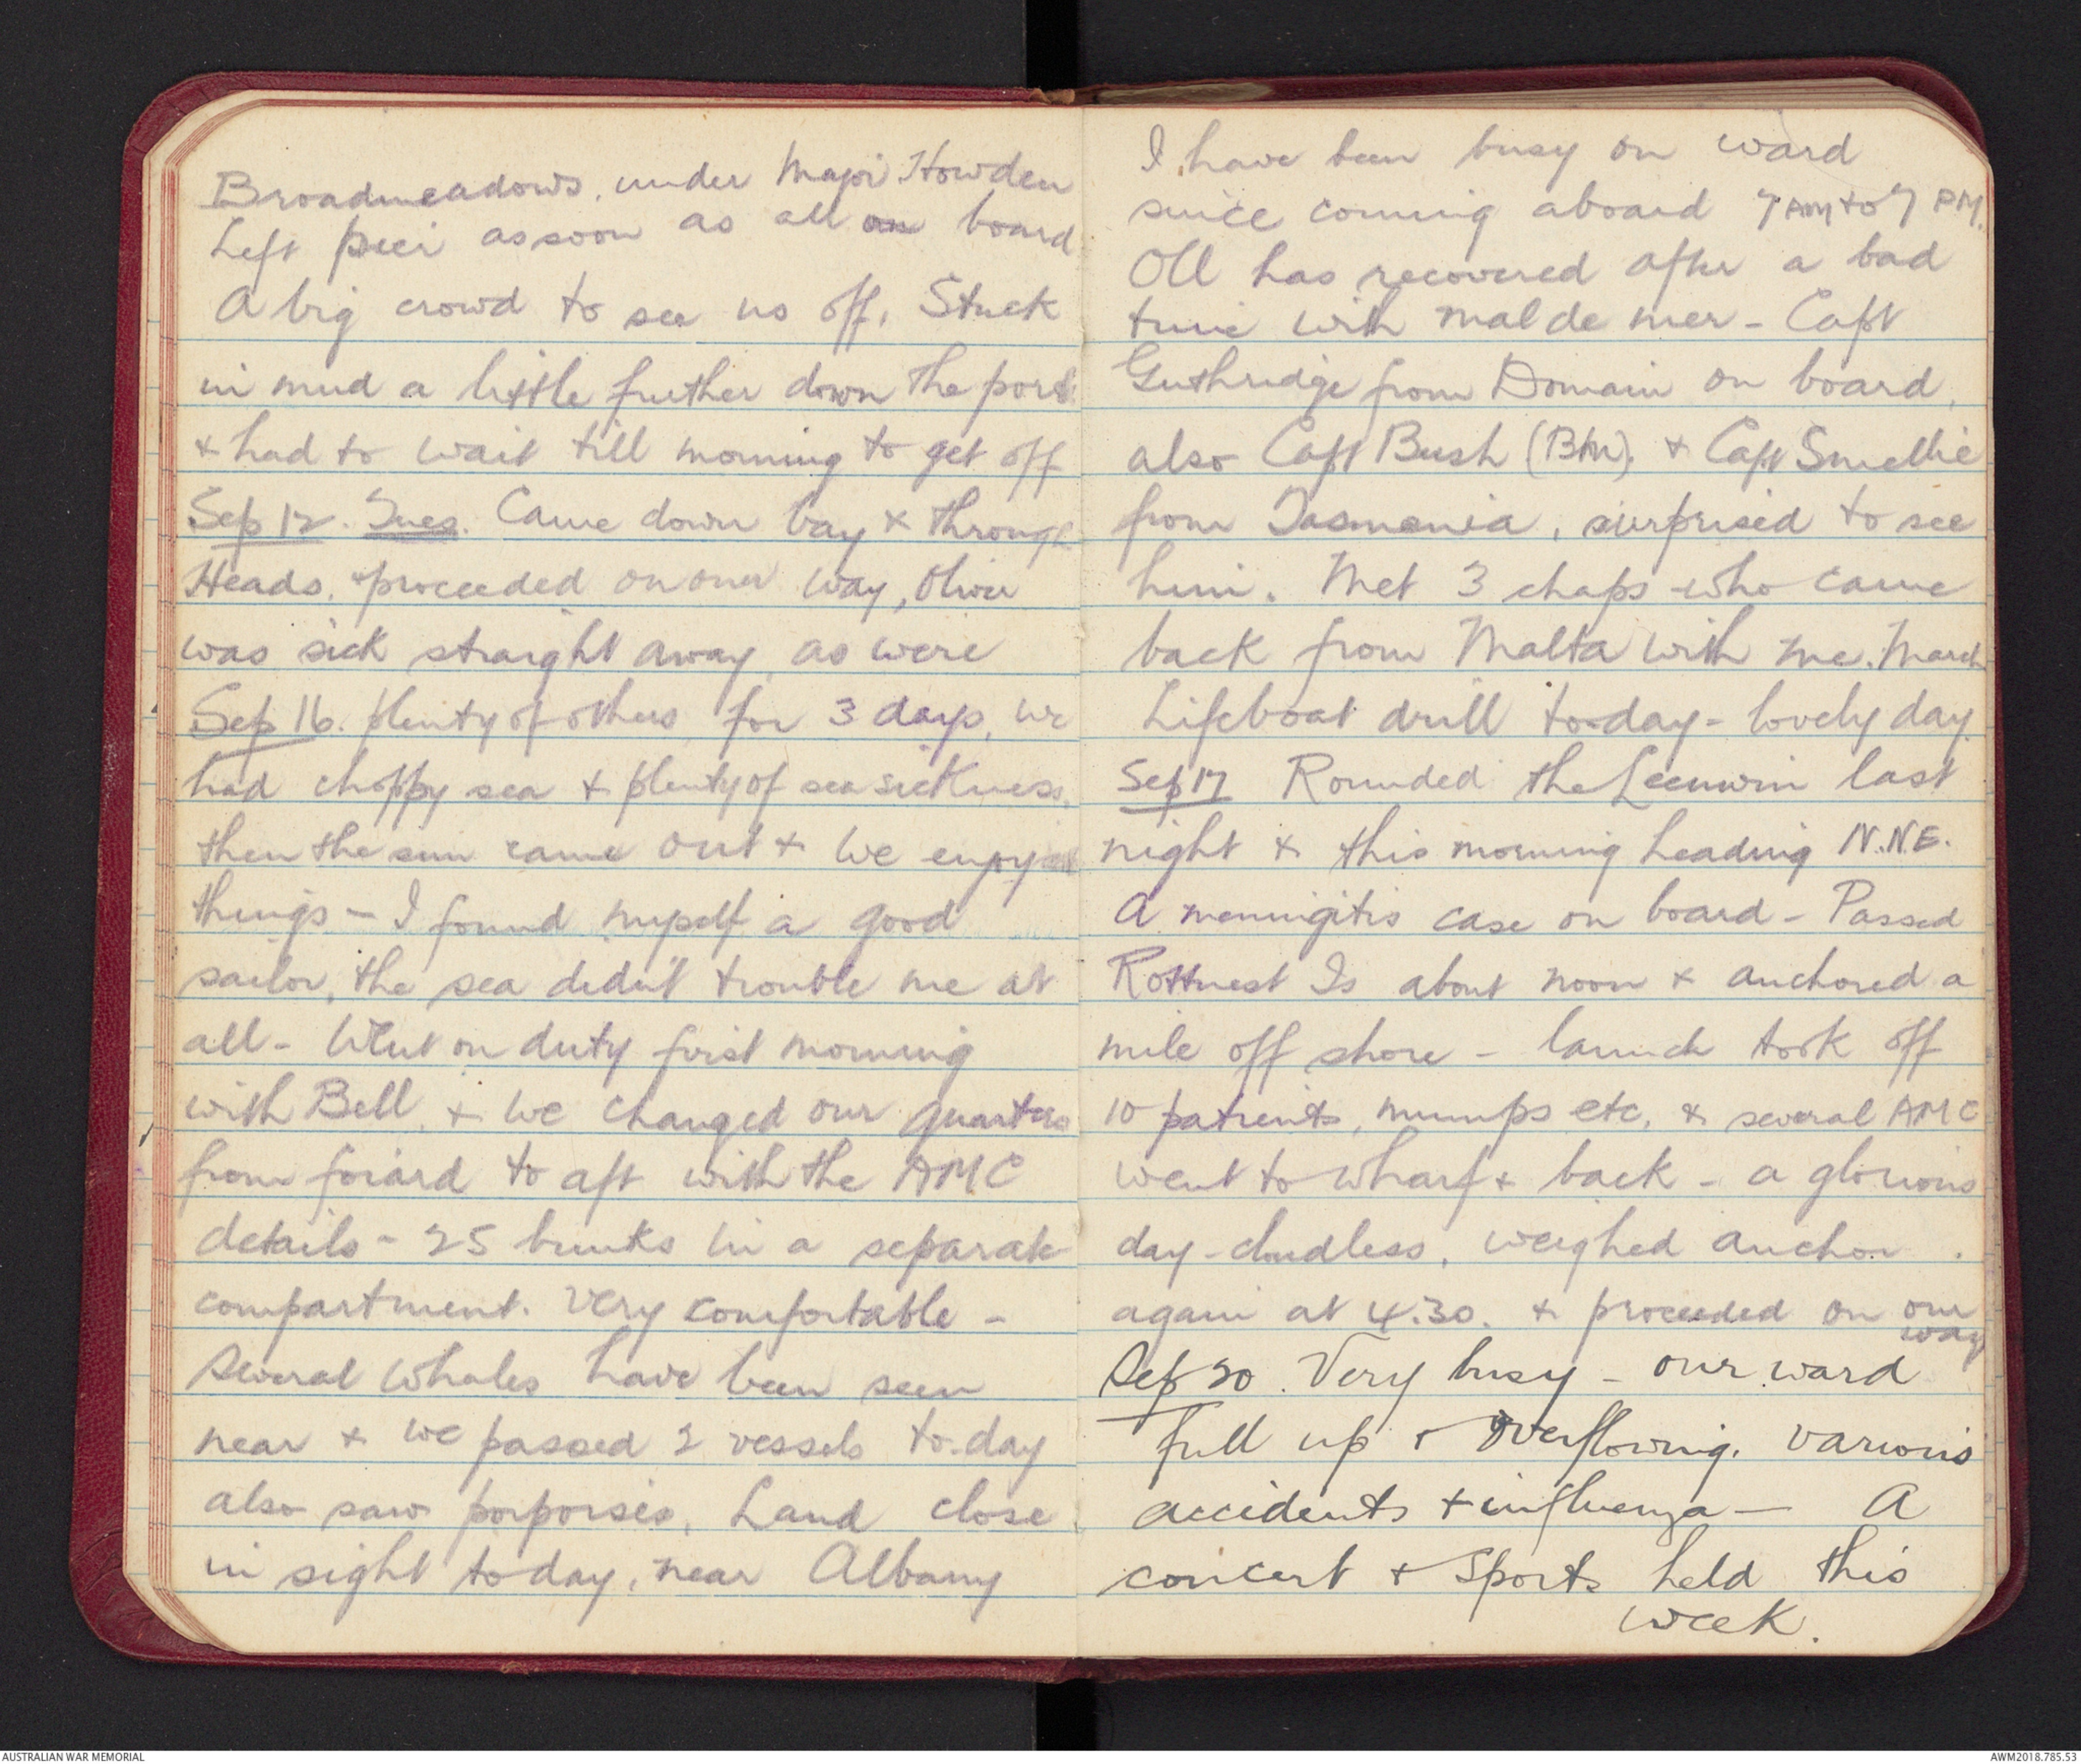 Broadmeadows, under Major Howden
Left pier as soon as all on board
A big crowd to see us off. Stuck
in mud a little further down the port
& had to wait till morning to get off
Sep 12. Tues. Came down bay & through
Heads, & proceeded on our way, Oliver
was sick straight away, as were
Sep 16. plenty of others, for 3 days, we
had choppy sea & plenty of sea sickness,
then the sun came out & we enjoyed
things - I found myself a good
sailor, the sea didn't trouble me at
all - Went on duty first morning
with Bell, & we changed our quarters
from for'ard to aft with the AMC
details - 25 bunks in a separate
compartment. Very comfortable -
Several whales have been seen
near & we passed 2 vessels to-day
also saw porpoises, Land close
in sight today, near Albany
I have been busy on ward
since coming aboard 7 AM to 7 PM.
Oll has recovered after a bad
time with mal de mer - Capt
Guthridge from Domain on board,
also Capt Bush (Btn), & Capt Smellie
from Tasmania, surprised to see
him. Met 3 chaps who came
back from Malta with me. March
Lifeboat drill to-day - lovely day.
Sep 17 Rounded the Leeuwin last
night & this morning heading N.N.E.
A meningitis case on board - Passed
Rottnest Is about noon & anchored a
mile off shore - launch took off
10 patients, mumps etc, & several AMC
went to wharf & back - a glorious
day - cloudless, weighed anchor
again at 4.30. & proceeded on our
way
Sep 20. Very busy - our ward
full up & overflowing. various
accidents & influenza - A
concert & Sports held this
week.
AUSTRALIAN WAR MEMORIAL
AWM2018.785.53